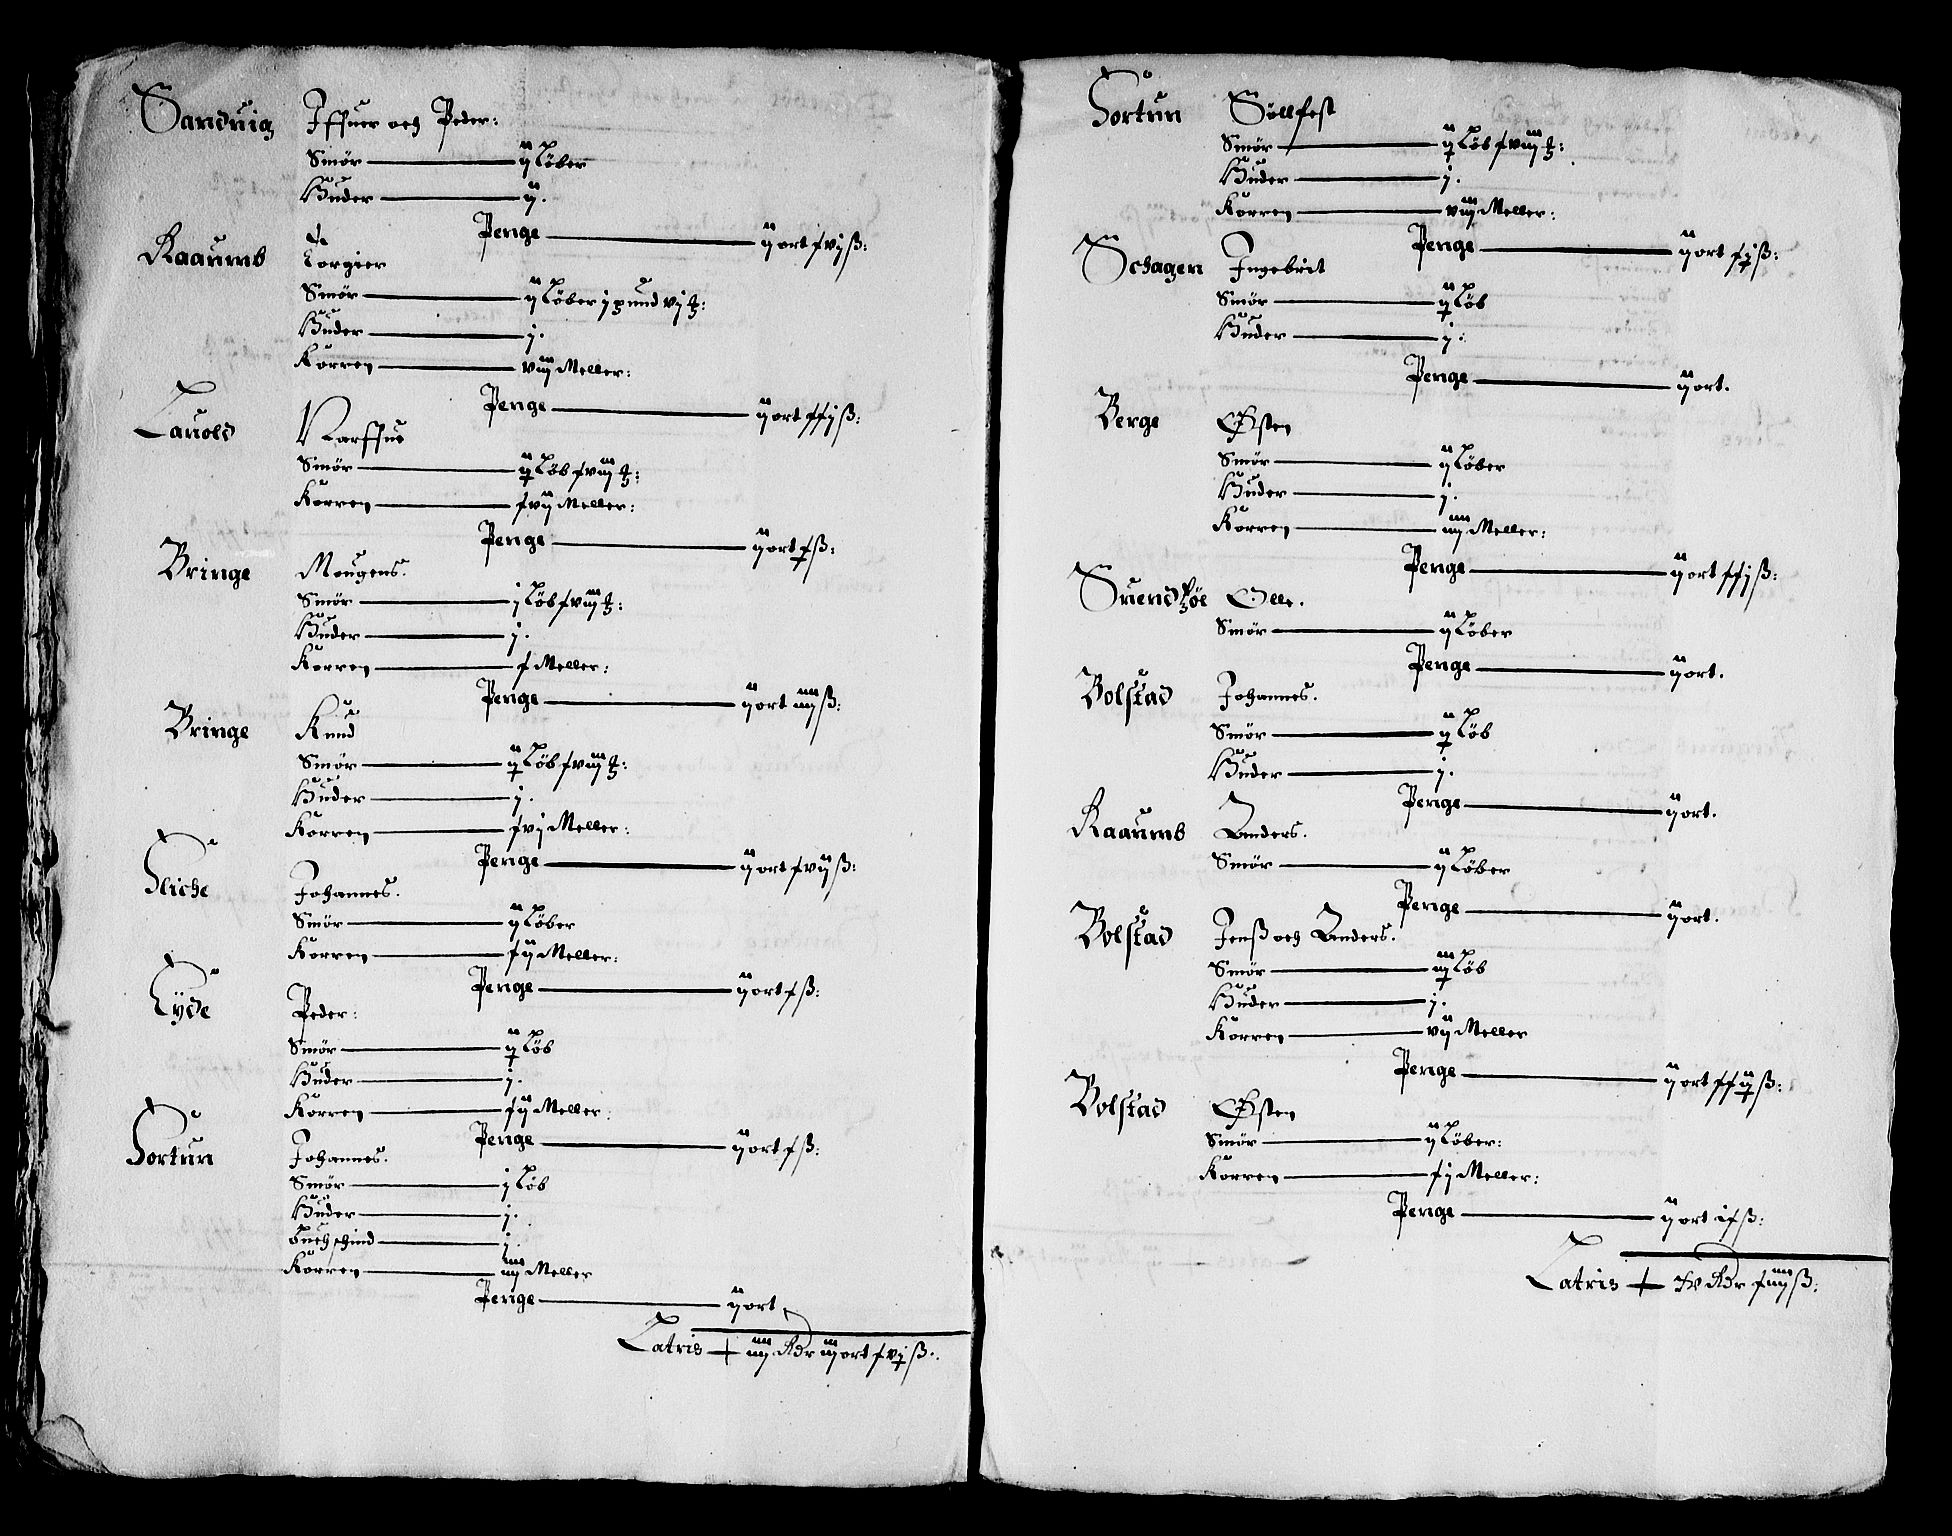 Sanduig Iffuer och Peder:
Smør — ij Løber
Huder — ij.
Penge — ij ort xvj ß:
Raaumb Torgier
Smør — ij Løber j pund vj
Huder — j.
Korren — viij Meller:
Penge — ij ort xxj ß:
Lauold Narffue
Smør — ij Løb xviij
Korren — xvij Meller:
Penge — ij ort x ß:
Bringe Mougens.
Smør — j Løb xviij
Huder — j.
Korren — x Meller:
Penge — ij ort iiij ß:
Bringe Knud
Smør — ij Løb xviij
Huder — j.
Korren — xvj Meller:
Penge — ij ort xvij ß:
Fliche Johannes.
Smør — ij Løber
Korren — xij Meller:
Penge — ij ort x ß:
Eyde Peder:
Smør — ij Løb
Huder — j.
Korren — xij Meller:
Penge — ij ort x ß:
Fortun Johannes.
Smør — j Løb
Huder — j.
Buchschind — j.
Korren — iiij Meller
Penge — ij ort
Latris + iiij Rdr iij ort xvj ß:
Fortun Søllfest
Smør — ij Løb xviij
Huder — j.
Korren — viij Meller:
Penge — ij ort xj ß:
Schagen Ingebrit
Smør — ij Løb
Huder — j:
Penge — ij ort.
Berge Østen
Smør — ij Løber
Huder — j.
Korren — iiij Meller:
Penge — ij ort xxj ß:
Suendzøe Olle.
Smør — ij Løber
Penge — ij ort.
Bolstad Johannes.
Smør — ij Løb
Huder — j.
Penge — ij ort.
Raaumb Anders.
Smør — ij Løber
Penge — ij ort.
Bolstad Jenß och Anders.
Smør — iij Løb
Huder — j.
Korren — vij Meller
Penge — ij ort xxij ß:
Bolstad Østen
Smør — ij Løber:
Korren — xj Meller:
Penge — ij ort ix ß:
Latris + Rdr xiiij ß: